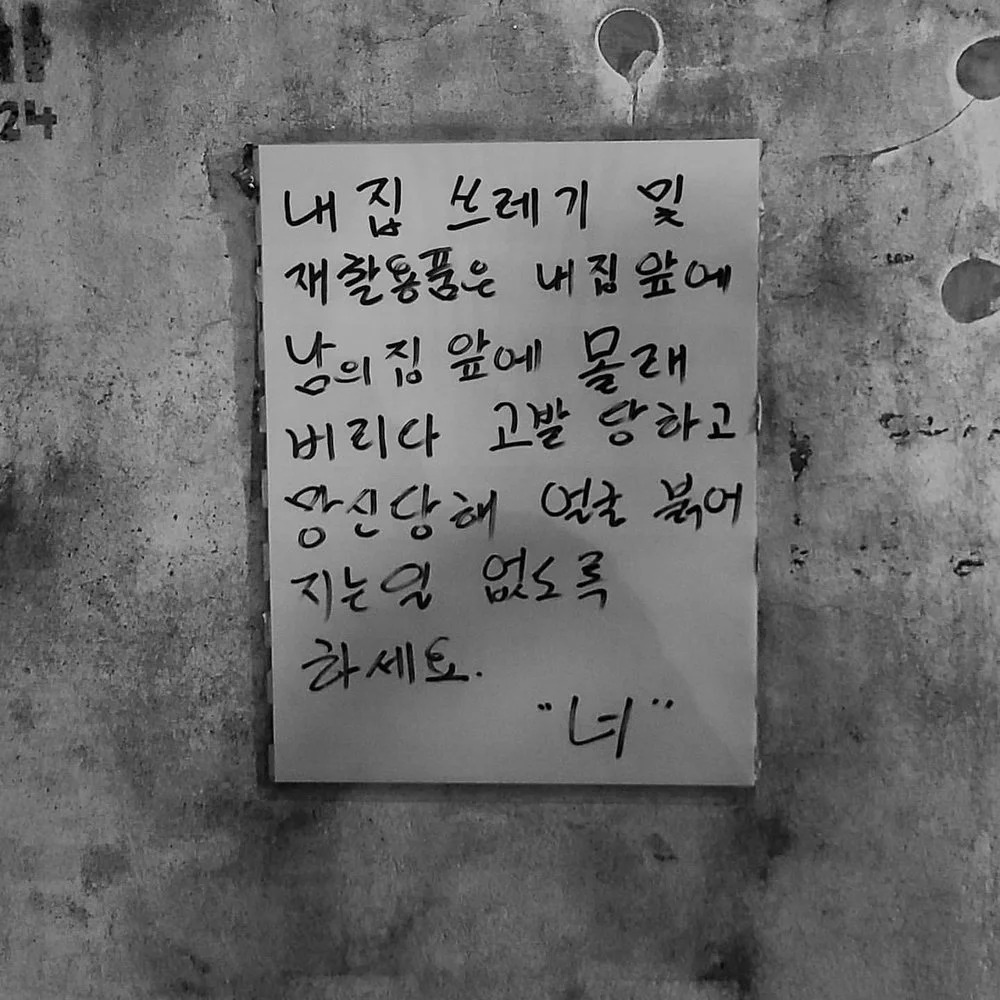 24
내 집 쓰레기 및
재활용품은 내집앞에
남의 집 앞에 몰래
버리다 고발 당하고
망신당해 얼굴 붉어
지는일 없도록
하세요.
"너"